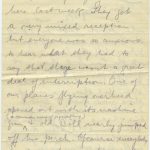 here last week. They got
a very mixed reception
but everyone was so anxious
to hear what they had to
say that there wasn't a great
deal of interruption. One of
our planes flying overhead
opened out with its machine
guns and nearly jumped
off the porch. Of course